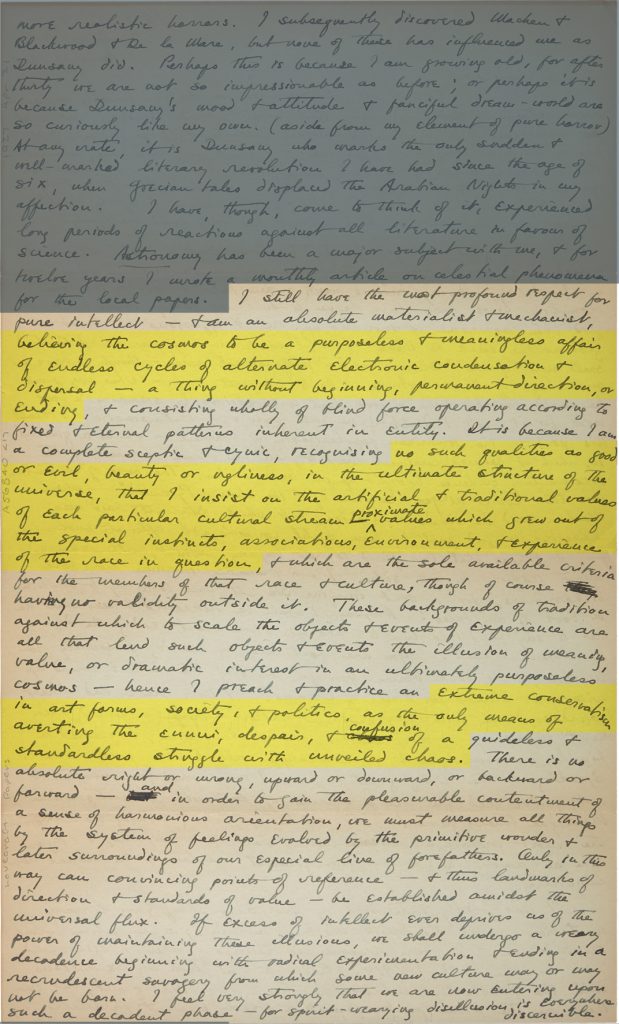 more realistic horrors. I subsequently discovered Machen &
Blackwood & De la Mare, but none of these has influenced me as
Dunsany did. Perhaps this is because I am growing old, for after
thirty we are not so impressionable as before; or perhaps it is
because Dunsany's mood & attitude & fanciful dream-world are
so curiously like my own. (aside from my element of pure horror)
At any rate, it is Dunsany who marks the only sudden &
well-marked literary revolution I have had since the age of
six, when Grecian tales displaced the Arabian Nights in my
affection. I have, though, come to think of it, experienced
long periods of reactions against all literature in favour of
science. Astronomy has been a major subject with me, & for
twelve years I wrote a monthly article on celestial phenomena
for the local papers. I still have the most profound respect for
pure intellect — & am an absolute materialist & mechanist,
believing the cosmos to be a purposeless & meaningless affair
of endless cycles of alternate electronic condensation &
dispersal — a thing without beginning, permanent direction, or
ending, & consisting wholly of blind force operating according to
fixed & eternal patterns inherent in entity. It is because I am
a complete sceptic & cynic, recognising no such qualities as good
or evil, beauty or ugliness, in the ultimate structure of the
universe, that I insist on the artificial & traditional values
of each particular cultural stream proximate values which grew out of
the special instincts, associations, environment, & experience
of the race in question, & which are the sole available criteria
for the members of that race & culture, though of course
having no validity outside it. These backgrounds of tradition
against which to scale the objects & events of experience are
all that lend such objects & events the illusion of meaning,
value, or dramatic interest in an ultimately purposeless
cosmos — hence I preach & practice an extreme conservatism
in art forms, society, & politics, as the only means of
averting the ennui, despair, & confusion of a guideless &
standardless struggle with unveiled chaos. There is no
absolute right or wrong, upward or downward, or backward or
forward — and in order to gain the pleasurable contentment of
a sense of harmonious orientation, we must measure all things
by the system of feelings evolved by the primitive wonder &
later surroundings of our especial line of forefathers. Only in this
way can convincing points of reference — & thus landmarks of
direction & standards of value — be established amidst the
universal flux. If excess of intellect ever deprives us of the
power of maintaining these illusions, we shall undergo a weary
decadence beginning with radical experimentation & ending in a
recrudescent savagery from which some new culture may or may
not be born. I feel very strongly that we are now entering upon
such a decadent phase — for spirit-wearying disillusion is everywhere
discernible.